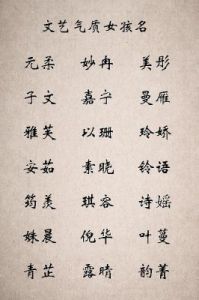 文艺气质女孩名
元柔 妙冉 美彤
子文 嘉宁 曼雁
雅芙 以珊 玲娇
安茹 素晓 铃语
筠羡 琪容 诗媱
姝晨 倪华 叶蔓
青芷 露晴 韵菁